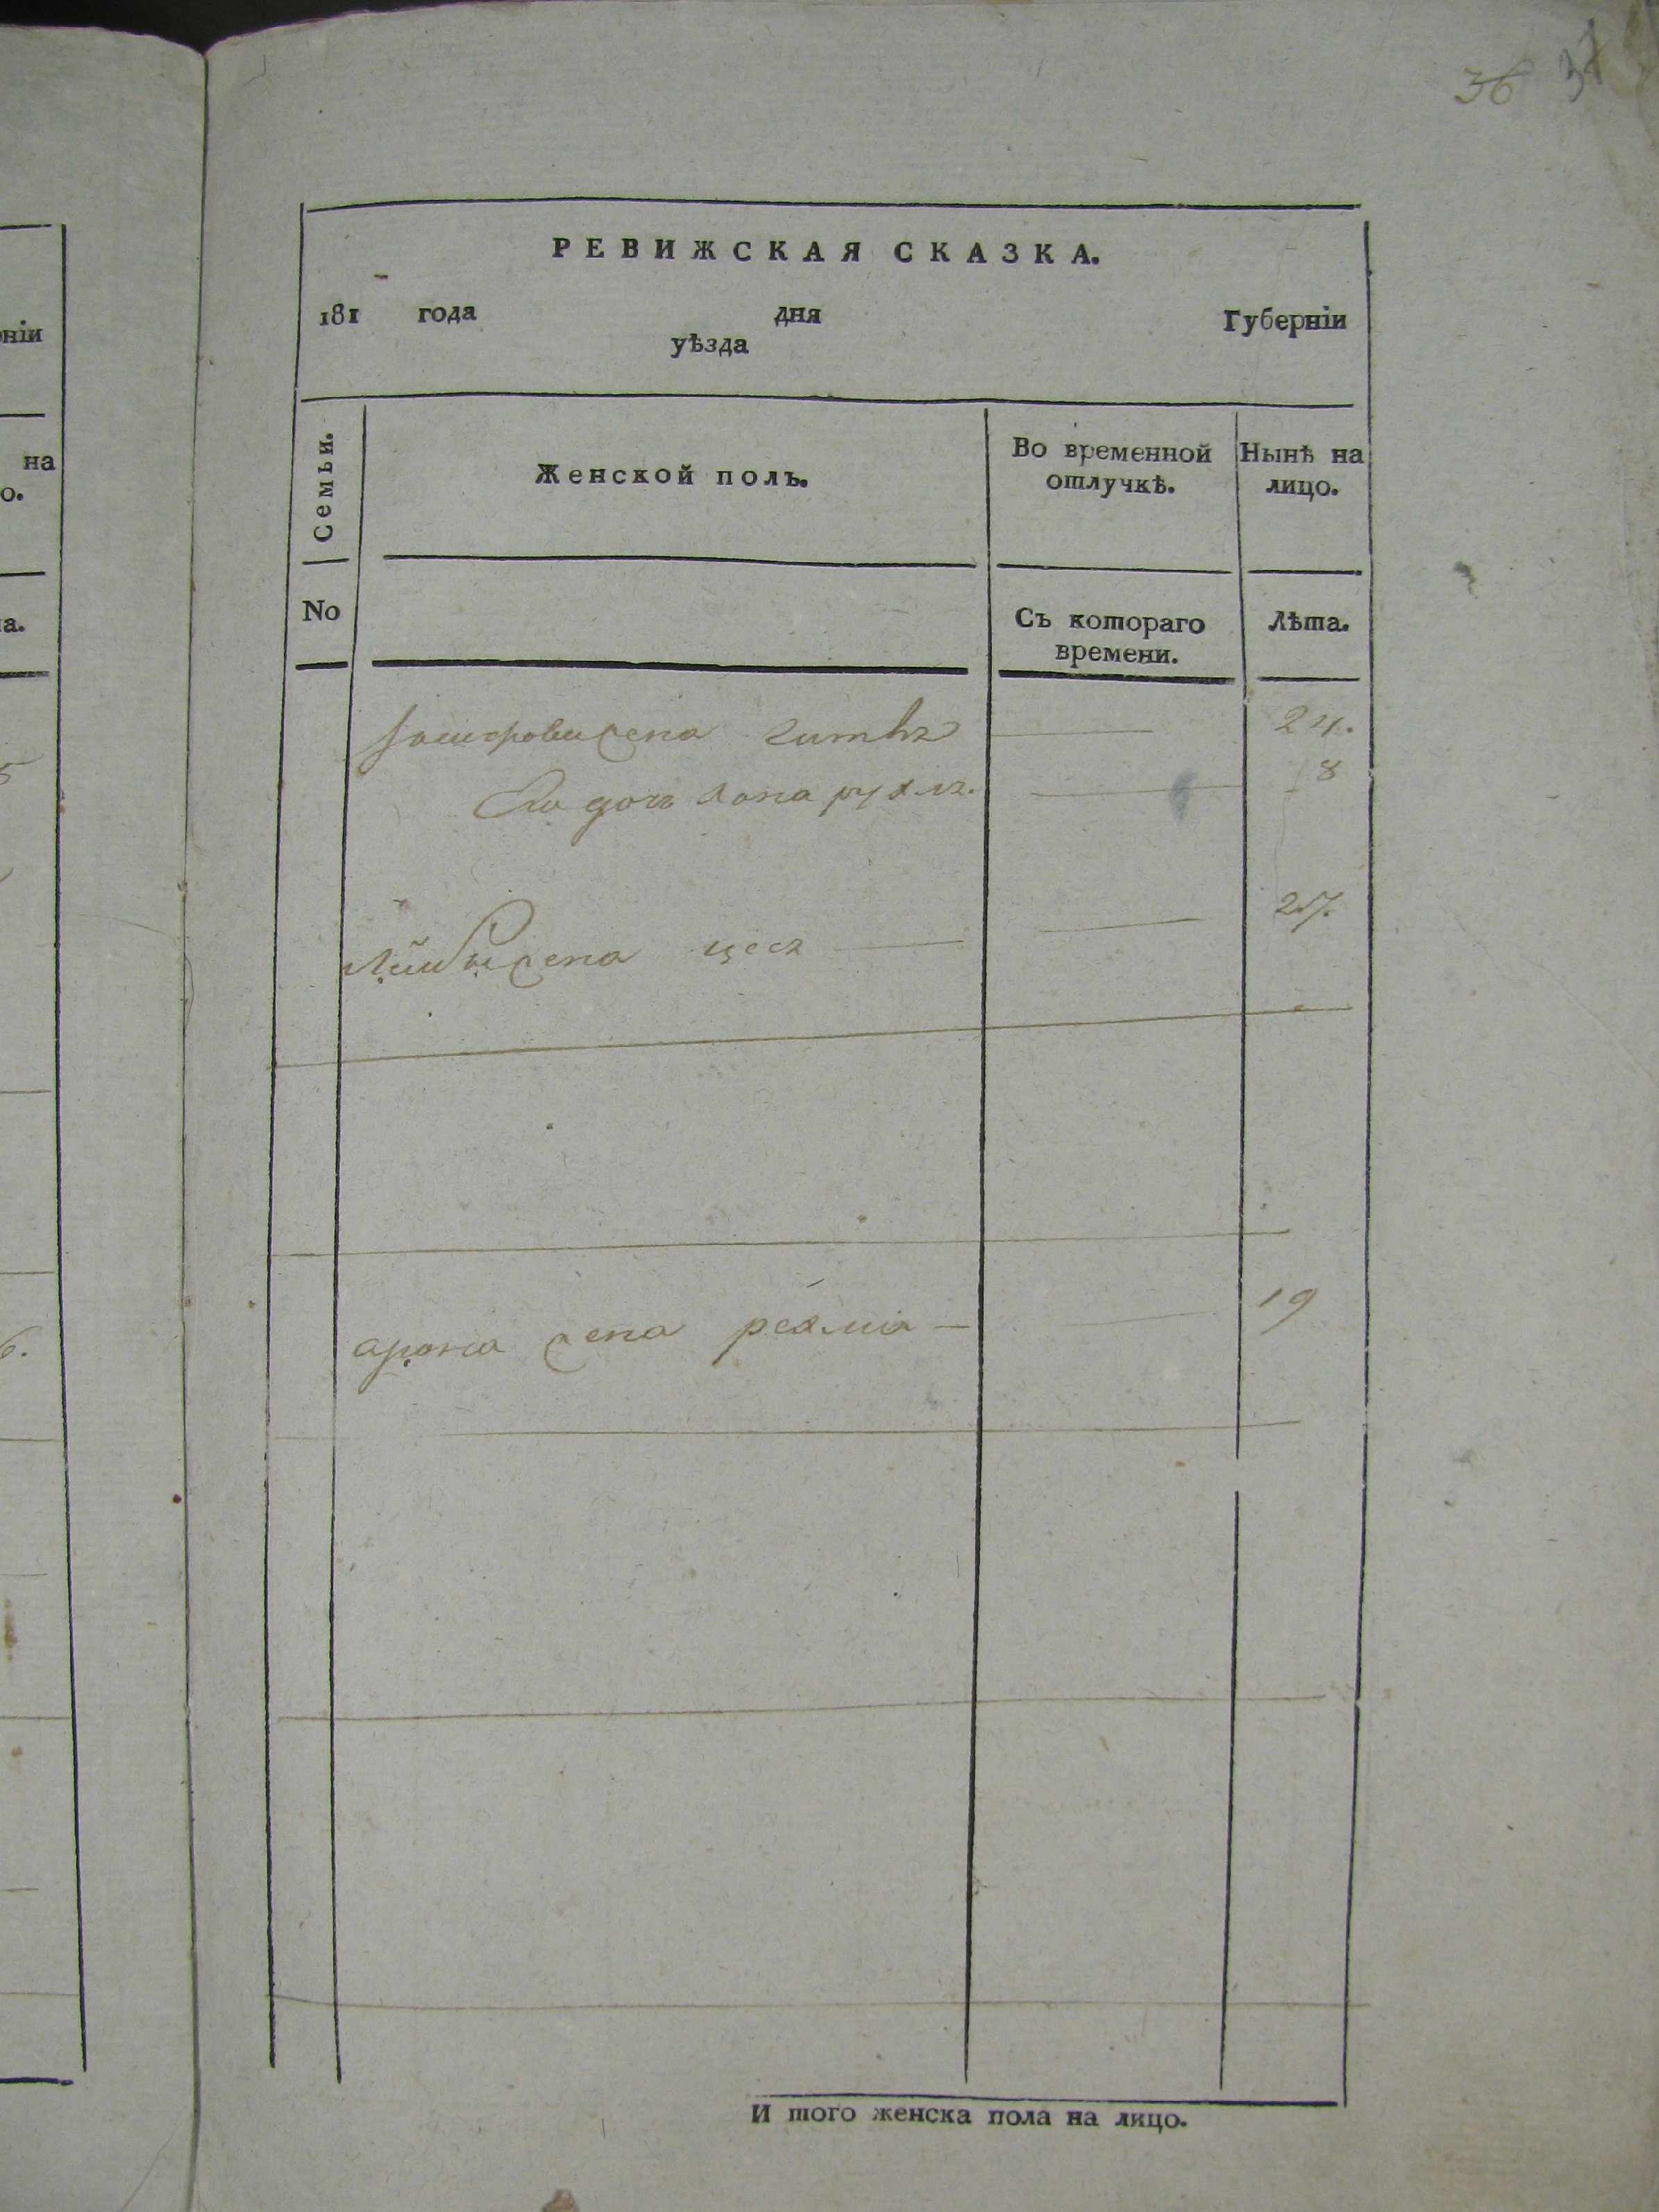 36 37
РЕВИЖСКАЯ СКАЗКА.
181 года дня Губерніи
уѣзда
Семьи.
Женской полъ.
Во временной отлучкѣ.
Нынѣ на лицо.
No
Съ котораго времени.
Лѣта.
жена 24.
Его дочь 8
жена цеся 27.
арона жена 19
И того женска пола на лицо.
ніи
на
о.
а.
6.